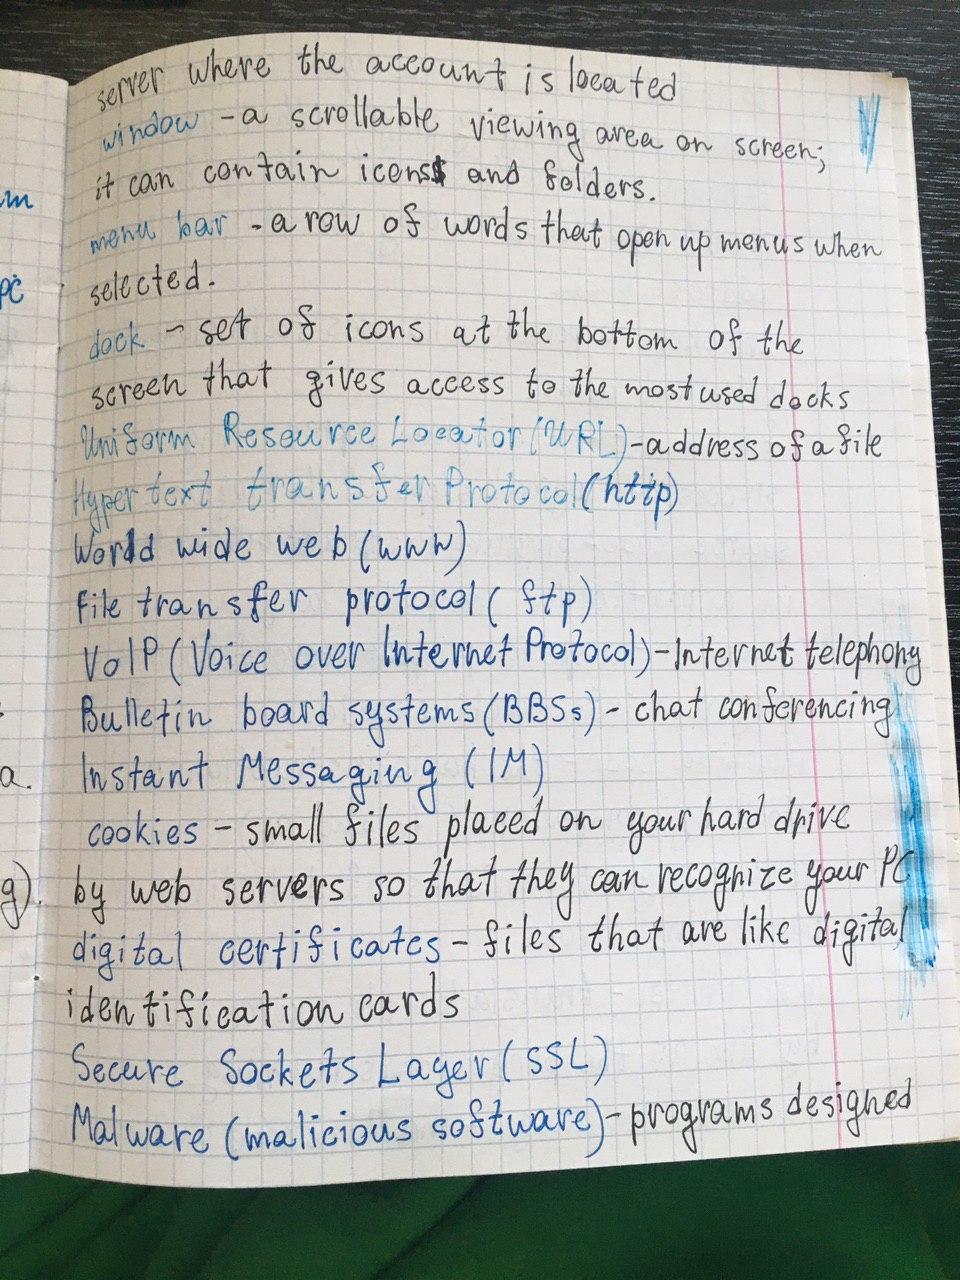 server where the account is located
window - a scrollable viewing area on screen;
it can contain icons and folders.
menu bar - a row of words that open up menus when
selected.
dock - set of icons at the bottom of the
screen that gives access to the most used docks
Uniform Resource Locator (URL) - address of a file
Hyper text transfer Protocol (http)
World wide web (www)
File transfer protocol (ftp)
VoIP (Voice over Internet Protocol) - Internet telephony
Bulletin board systems (BBSs) - chat conferencing
Instant Messaging (IM)
cookies - small files placed on your hard drive
by web servers so that they can recognize your PC
digital certificates - files that are like digital
identification cards
Secure Sockets Layer (SSL)
Malware (malicious software) - programs designed